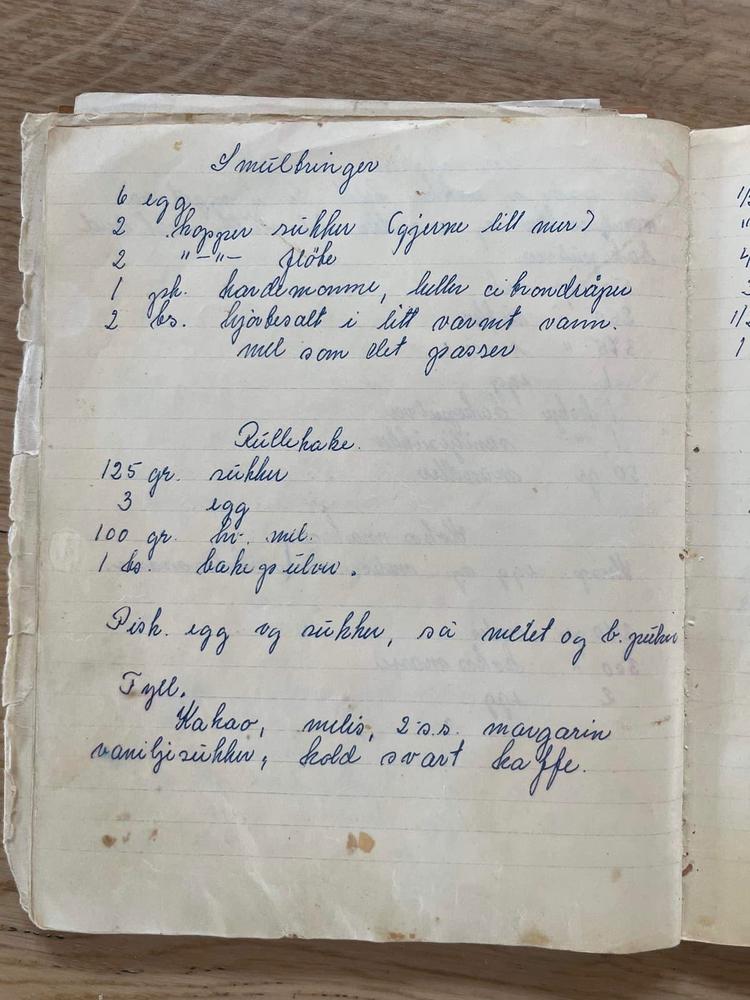 Smulbringer
6 egg
2 kopper sukker (gjerne litt mer)
2 "-"- fløte
1 pk. kardemomme, heller citrondråper
2 ts. hjortesalt i litt varmt vann.
mel som det passer
Rullekake.
125 gr. sukker
3 egg
100 gr. hv. mel.
1 ts. bakepulver.
Pisk. egg og sukker, så melet og b. pulver
Fyll.
Kakao, melis, 2 s.s. margarin
vaniljesukker, kold svart kaffe.
1/2
"
1/2
1